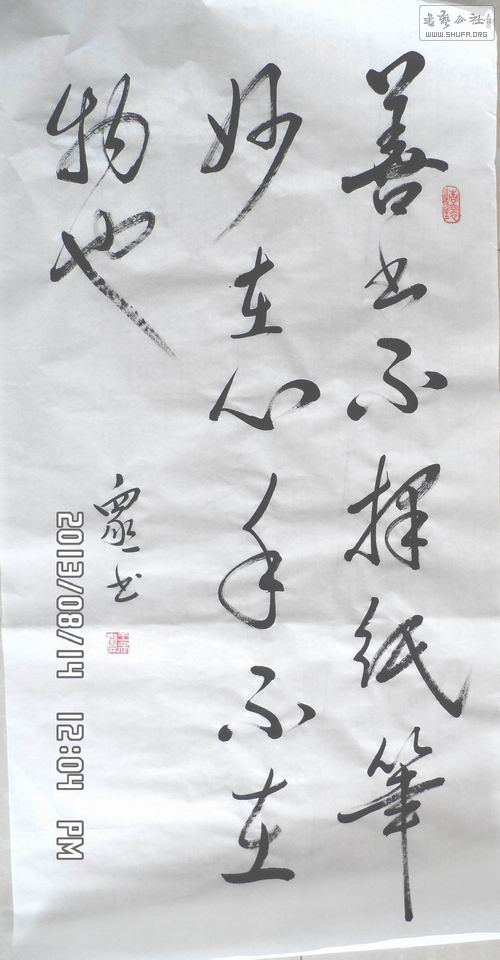 善书不择纸筆
妙在心手不在
物也
眾一书
2013/08/14 12:04 PM
书艺公社
WWW.SHUFA.ORG